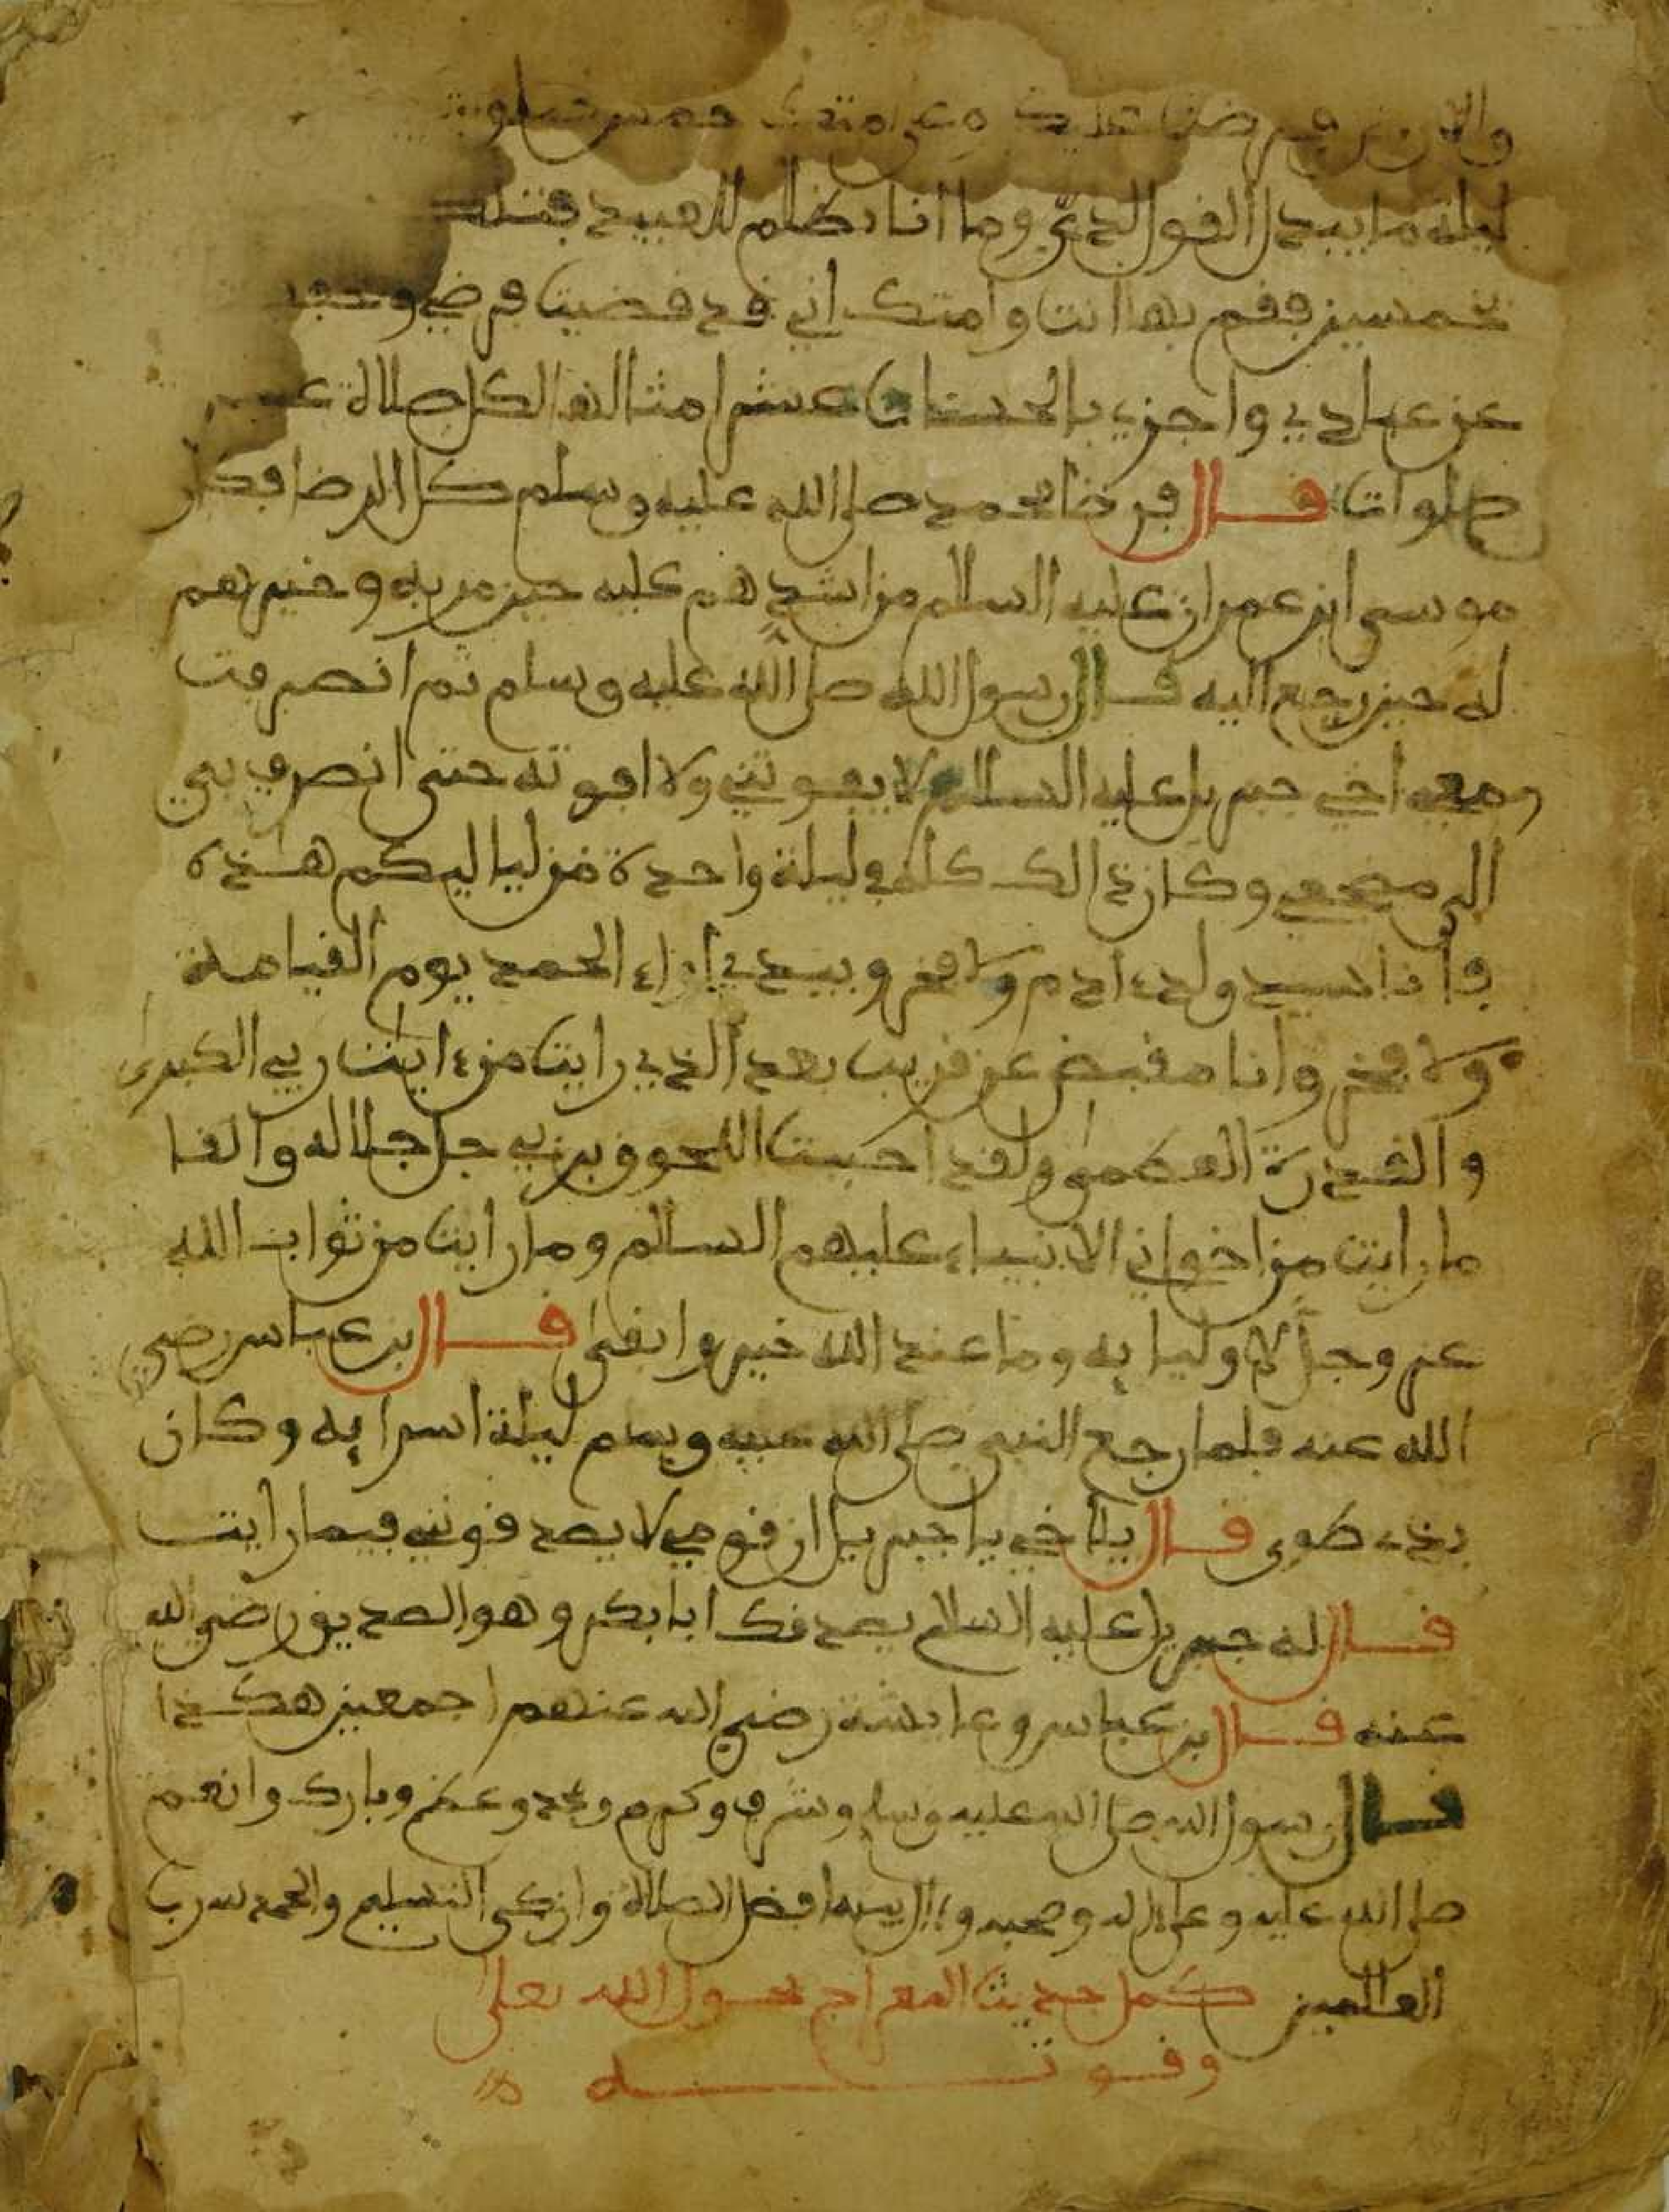 فرضت عليك وعلى امتك خمس صلوات
ليلة ما يبدل القول لدي وما انا بظلم للعبيد فتلك
بخمسين فقم بها انت وامتك اني قد قضيت فرضي وخففت
عن عبادي واجزي بالحسنات عشر امثالها لكل صلاة عشر
صلوات قال فرضا محمد صلى الله عليه وسلم كل الرضا فكان
موسى ابن عمران عليه السلام من اشدهم عليه حين مر به وخيرهم
له حين رجع اليه قال رسول الله صلى الله عليه وسلم ثم انصرفت
ومعي اخي جبريل عليه السلام لا يفوتني ولا افوته حتى انصرف بي
الى مضجعي وكان ذالك كله في ليلة واحدة من لياليكم هذه
فأنا سيد ولد ءادم ولا فخر وبيدي لواء الحمد يوم القيامة
ولا فخر وانا مقبض عن قريب بعد الذي رايت من ءايت ربي الكبرى
والقدرة العظمى ولقد احببت اللحوق بربي جل جلاله والقا
ما رايت من اخواني الانبياء عليهم السلام وما رايت من ثواب الله
عز وجل لاوليايه وما عند الله خير وابقى قال بن عباس رضي
الله عنه فلما رجع النبي صلى الله عليه وسلم ليلة اسرا به وكان
بذي طوى قال يا اخي يا جبريل ان قومي لا يصدقوني فيما رايت
قال له جبريل عليه السلام يصدقك ابا بكر وهو الصديق رضي الله
عنه قال بن عباس وعايشة رضي الله عنهم اجمعين هكذا
قال رسول الله صلى الله عليه وسلم وشرف وكرم ومجد وعظم وبارك وانعم
صلى الله عليه وعلى ءاله وصحبه افضل الصلاة وازكى التسليم والحمد لله رب
العالمين كمل حديث المعراج بحول الله تعلى
وقوته